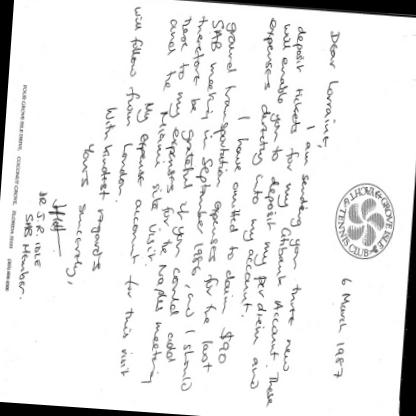 GROVE ISLE
YACHT &
TENNIS CLUB
6 March 1987
Dear Lorraine,
I am sending you three new
deposit tickets for my Citibank Account. These
will enable you to deposit my per diem and
expenses directly into my account.
I have omitted to claim $90
ground transportation expenses for the last
SAB meeting in September 1986, and I should
therefore be grateful if you could add
these to my expenses for the Naples meeting
and the Miami site visit.
My expense account for this visit
will follow from London.
With kindest regards
Yours sincerely,
DR J.R. IDLE
SAB Member.
FOUR GROVE ISLE DRIVE, COCONUT GROVE, FLORIDA